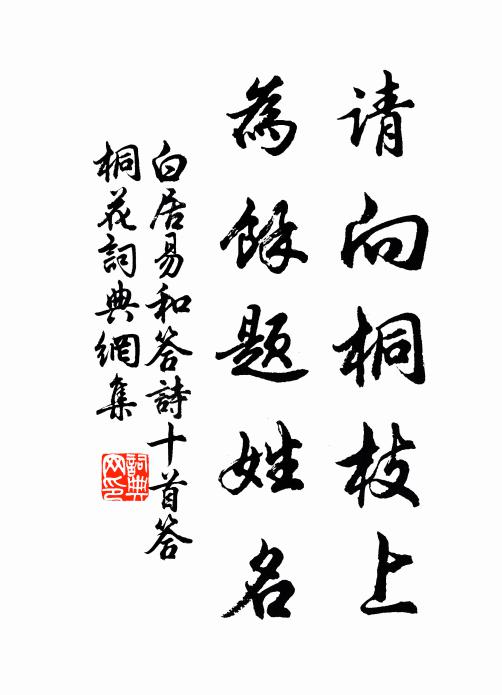 请向桐枝上
為餘題姓名
白居易和答詩十首答
桐花詞典網集
詞典網印